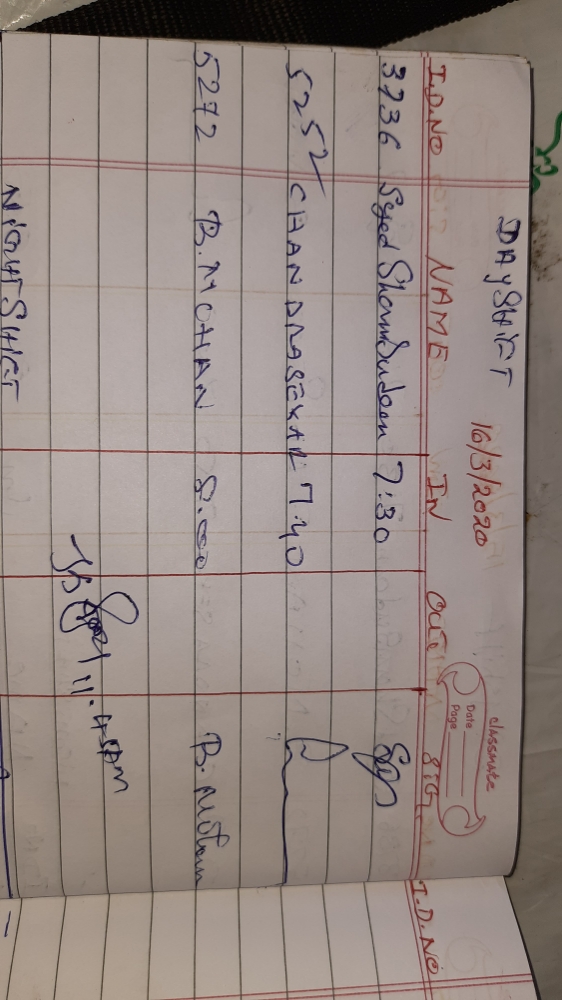 classmate
Date
Page
DAY SHIFT 16/3/2020
I.D.NO NAME IN OUT SIG I.D.NO
3236 Syed Shamsudeen 7:30
5252 CHANDRASEKAR 7.40
5272 B.MOHAN 8.00 B. Mohan
11.45AM
NIGHT SHIFT